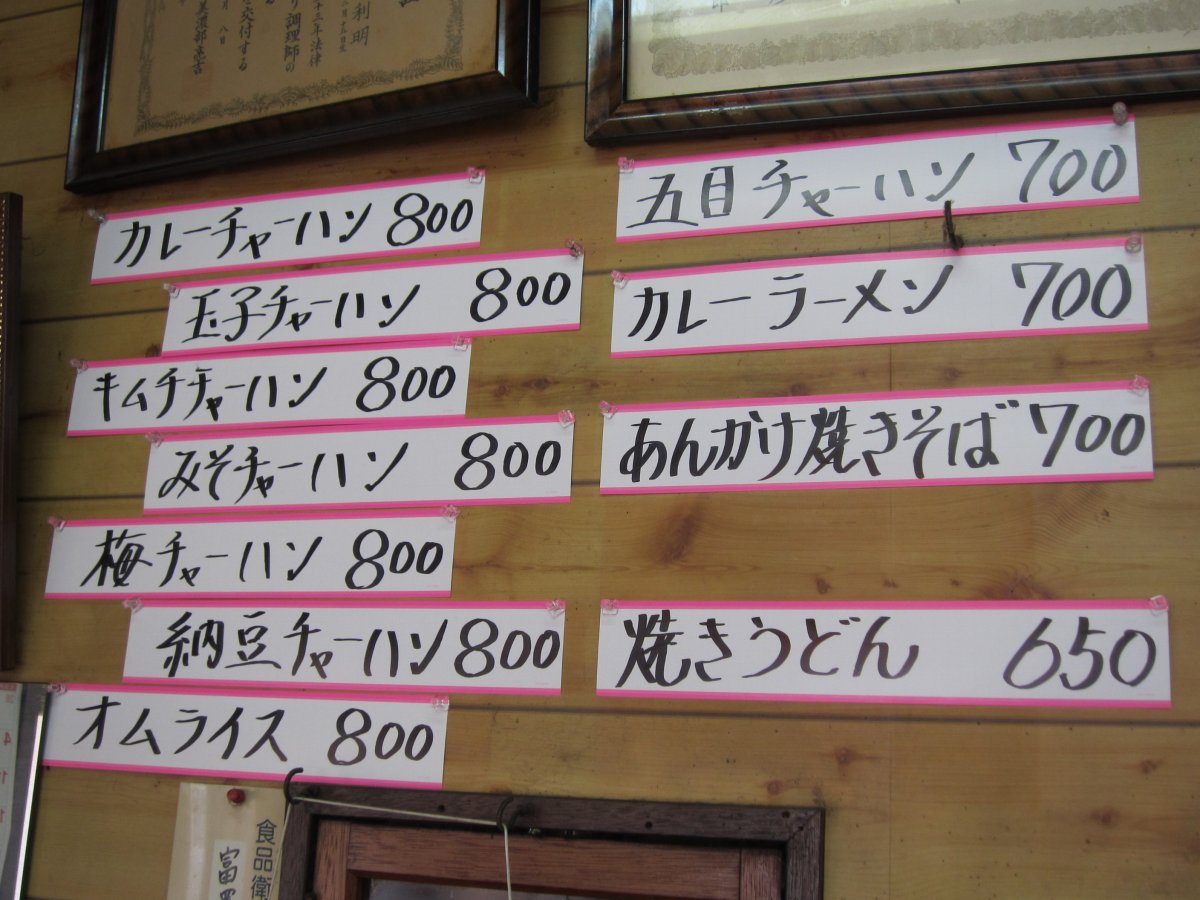 利明
り調理師の
十三年法律
を交付する
美濃部亮吉
月 八日
カレーチャーハン 800
玉子チャーハン 800
キムチチャーハン 800
みそチャーハン 800
梅チャーハン 800
納豆チャーハン 800
オムライス 800
五目チャーハン 700
カレーラーメン 700
あんかけ焼きそば 700
焼きうどん 650
食品衛
富